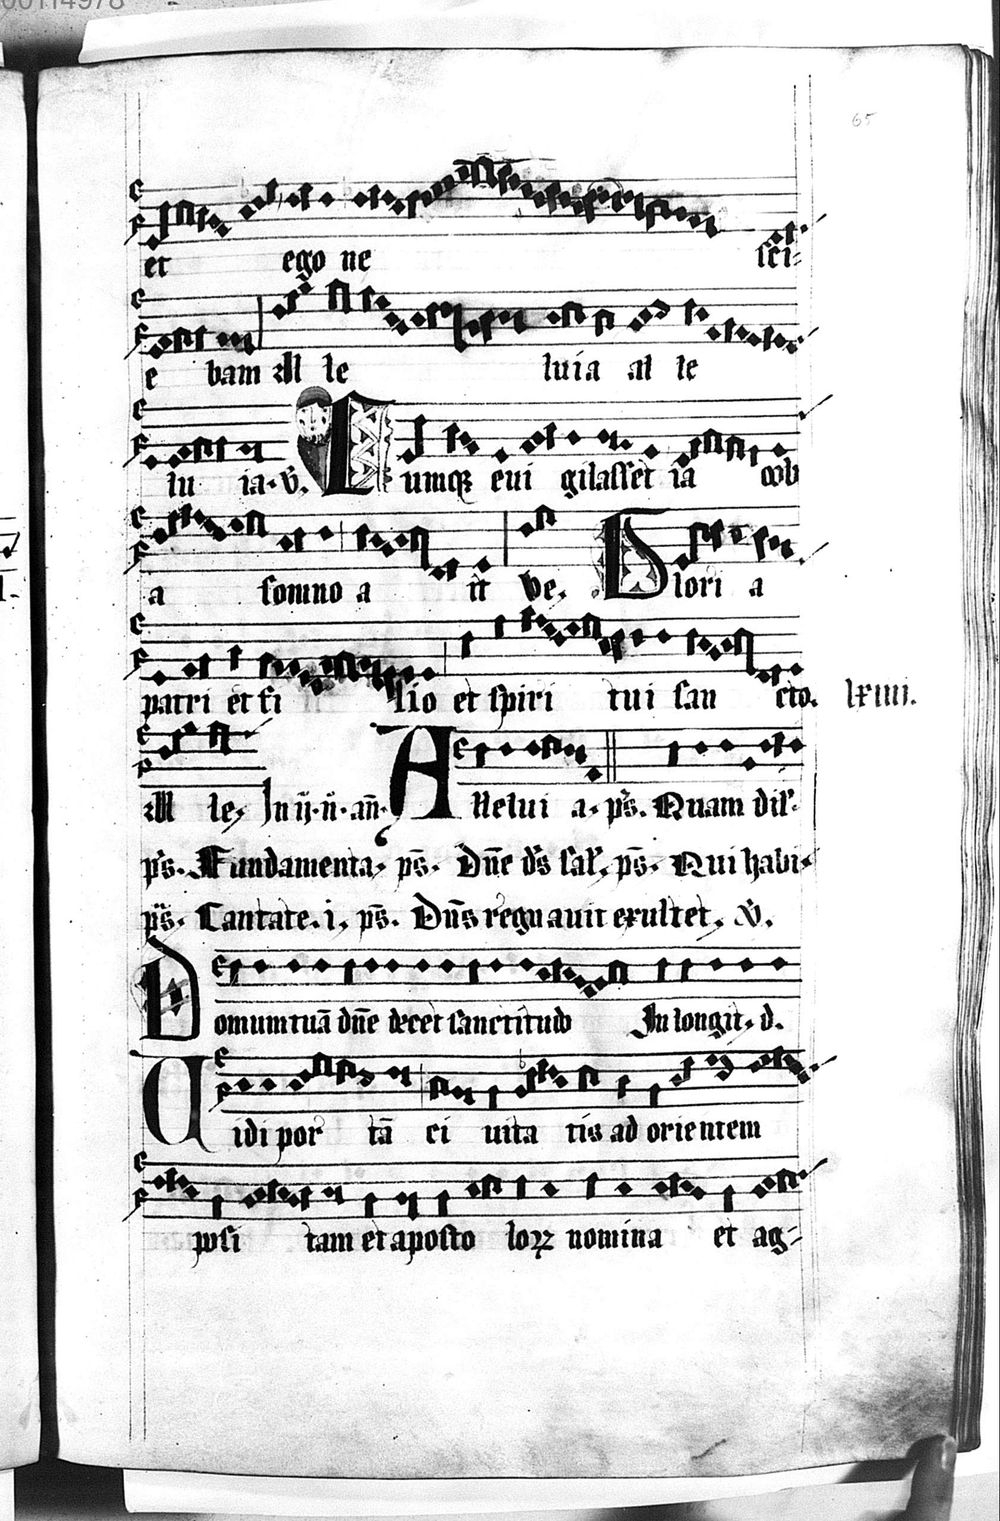 00114978
65
et ego ne sci-
e bam All le luia al le
lu ia. v. Cumqꝫ evi gilasset ia cob
a somno a it Ve. Glori a
patri et fi lio et spiri tui san cto. lxiiii.
All le, In ij. n. an̄. A llelui a. ps̄. Quam dil-
ps̄. Fundamenta, ps̄. Dn̄e ds̄ sal, ps̄. Qui habi-
ps̄. Cantate. i, ps̄. Dn̄s regnavit exultet, v.
Domum tuā dn̄e decet sanctitudo In longit. d.
Vidi por tā ci vita tis ad orientem
posi tam et aposto loꝝ nomina et ag-